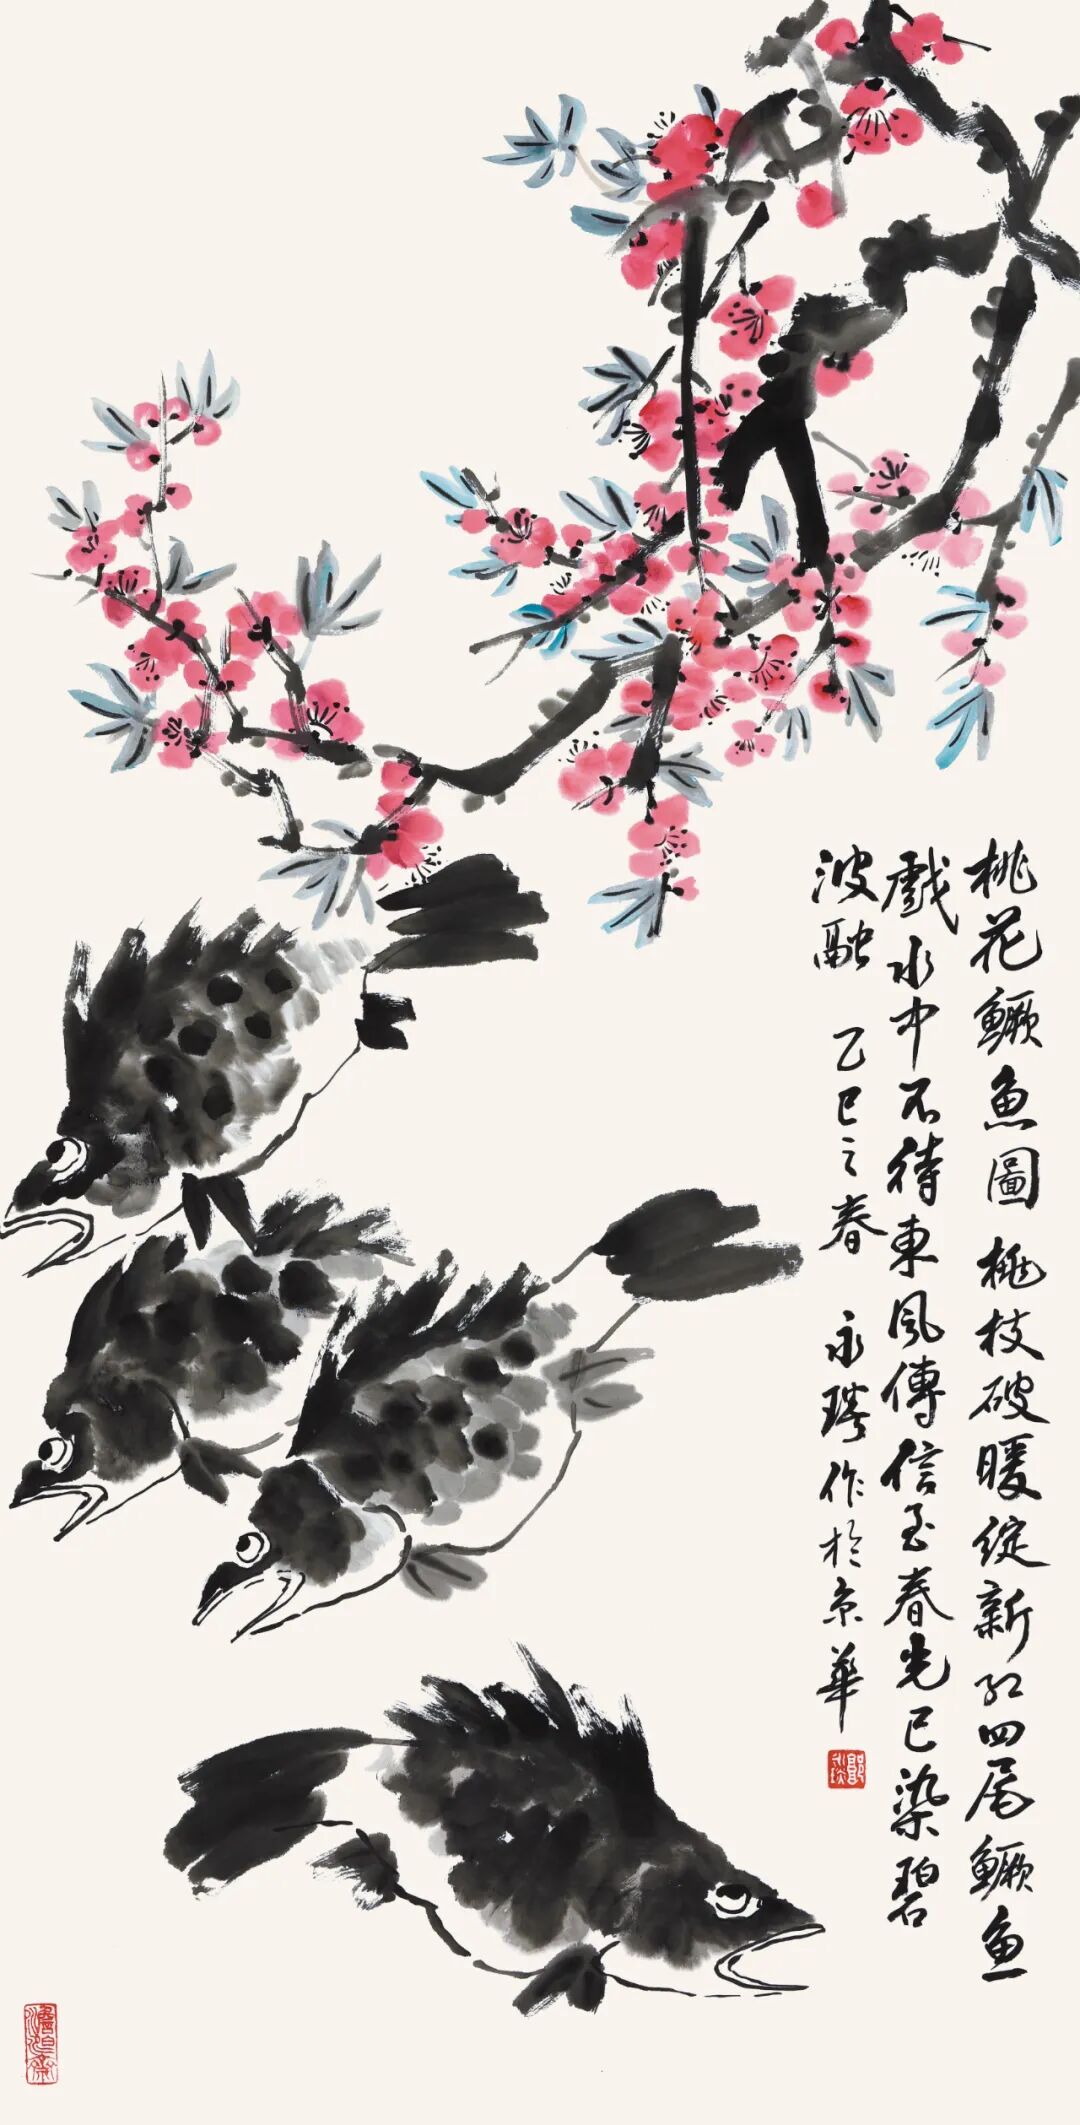 桃花鳜魚圖 桃枝破暖綻新紅四尾鳜魚
戲水中不待東風傳信至春光已染碧
波融 乙巳之春 永瑛作於京華